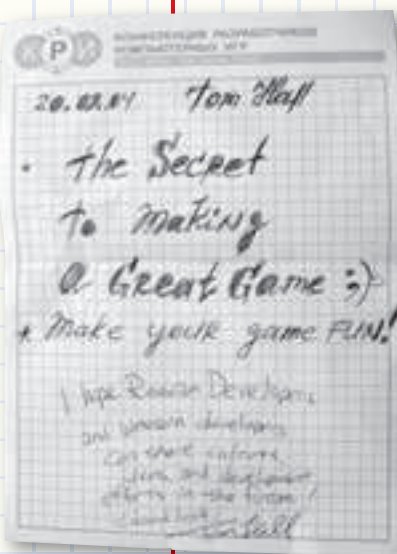 КРИ
КОНФЕРЕНЦИЯ РАЗРАБОТЧИКОВ
КОМПЬЮТЕРНЫХ ИГР
20.02.04 Tom Hall
• the Secret
to making
a Great Game ;)
* Make your game FUN!
I hope Russian Developers
and western developers
can share cultures,
ideas and development
efforts in the future!